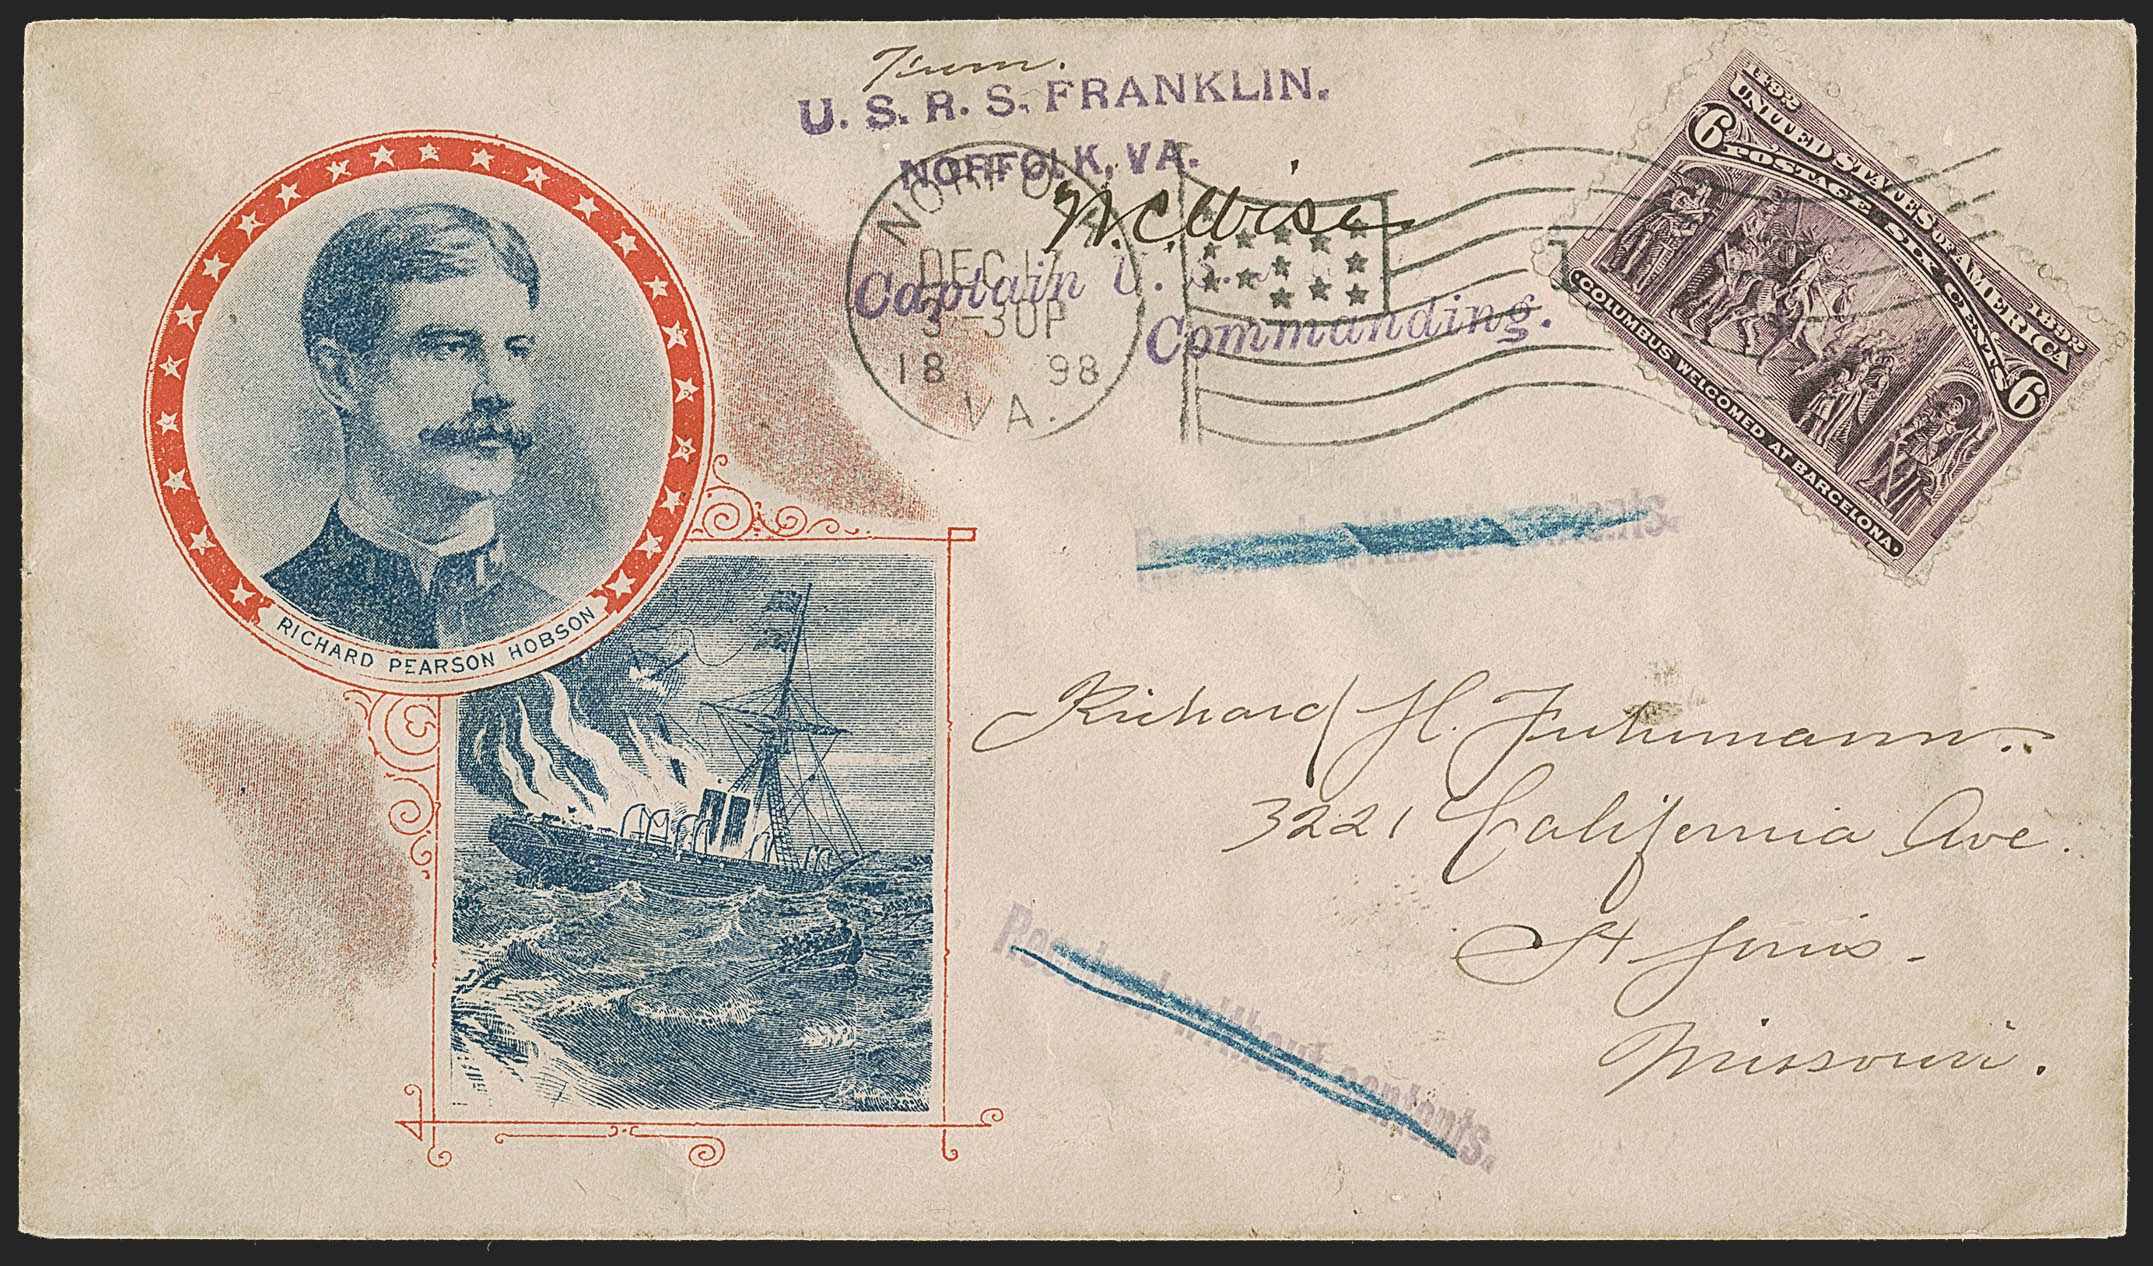 From.
U. S. R. S. FRANKLIN.
NORFOLK, VA.
W. C. Wise
Captain U. S.
Commanding.
NORFOLK
DEC 17
3-30P
18 98
VA.
1492 1892
UNITED STATES OF AMERICA
6 POSTAGE SIX CENTS 6
COLUMBUS WELCOMED AT BARCELONA.
RICHARD PEARSON HOBSON
Received without contents.
Richard H. Fuhrmann.
3221 California Ave.
St Louis -
Missouri.
Received without contents.